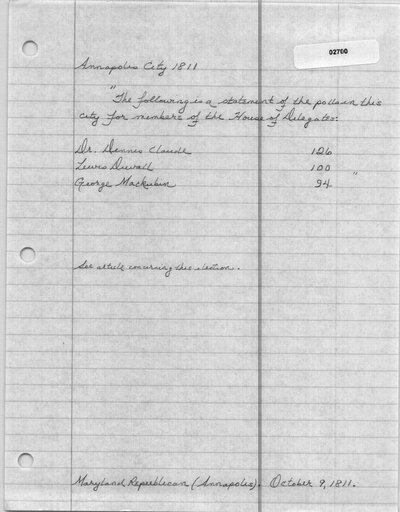 02700
Annapolis City 1811
"The following is a statement of the polls in this
city for members of the House of Delegates:
Dr. Dennis Claude 126
Lewis Duvall 100
George Mackubin 94 "
See article concerning this election.
Maryland Republican (Annapolis). October 9, 1811.